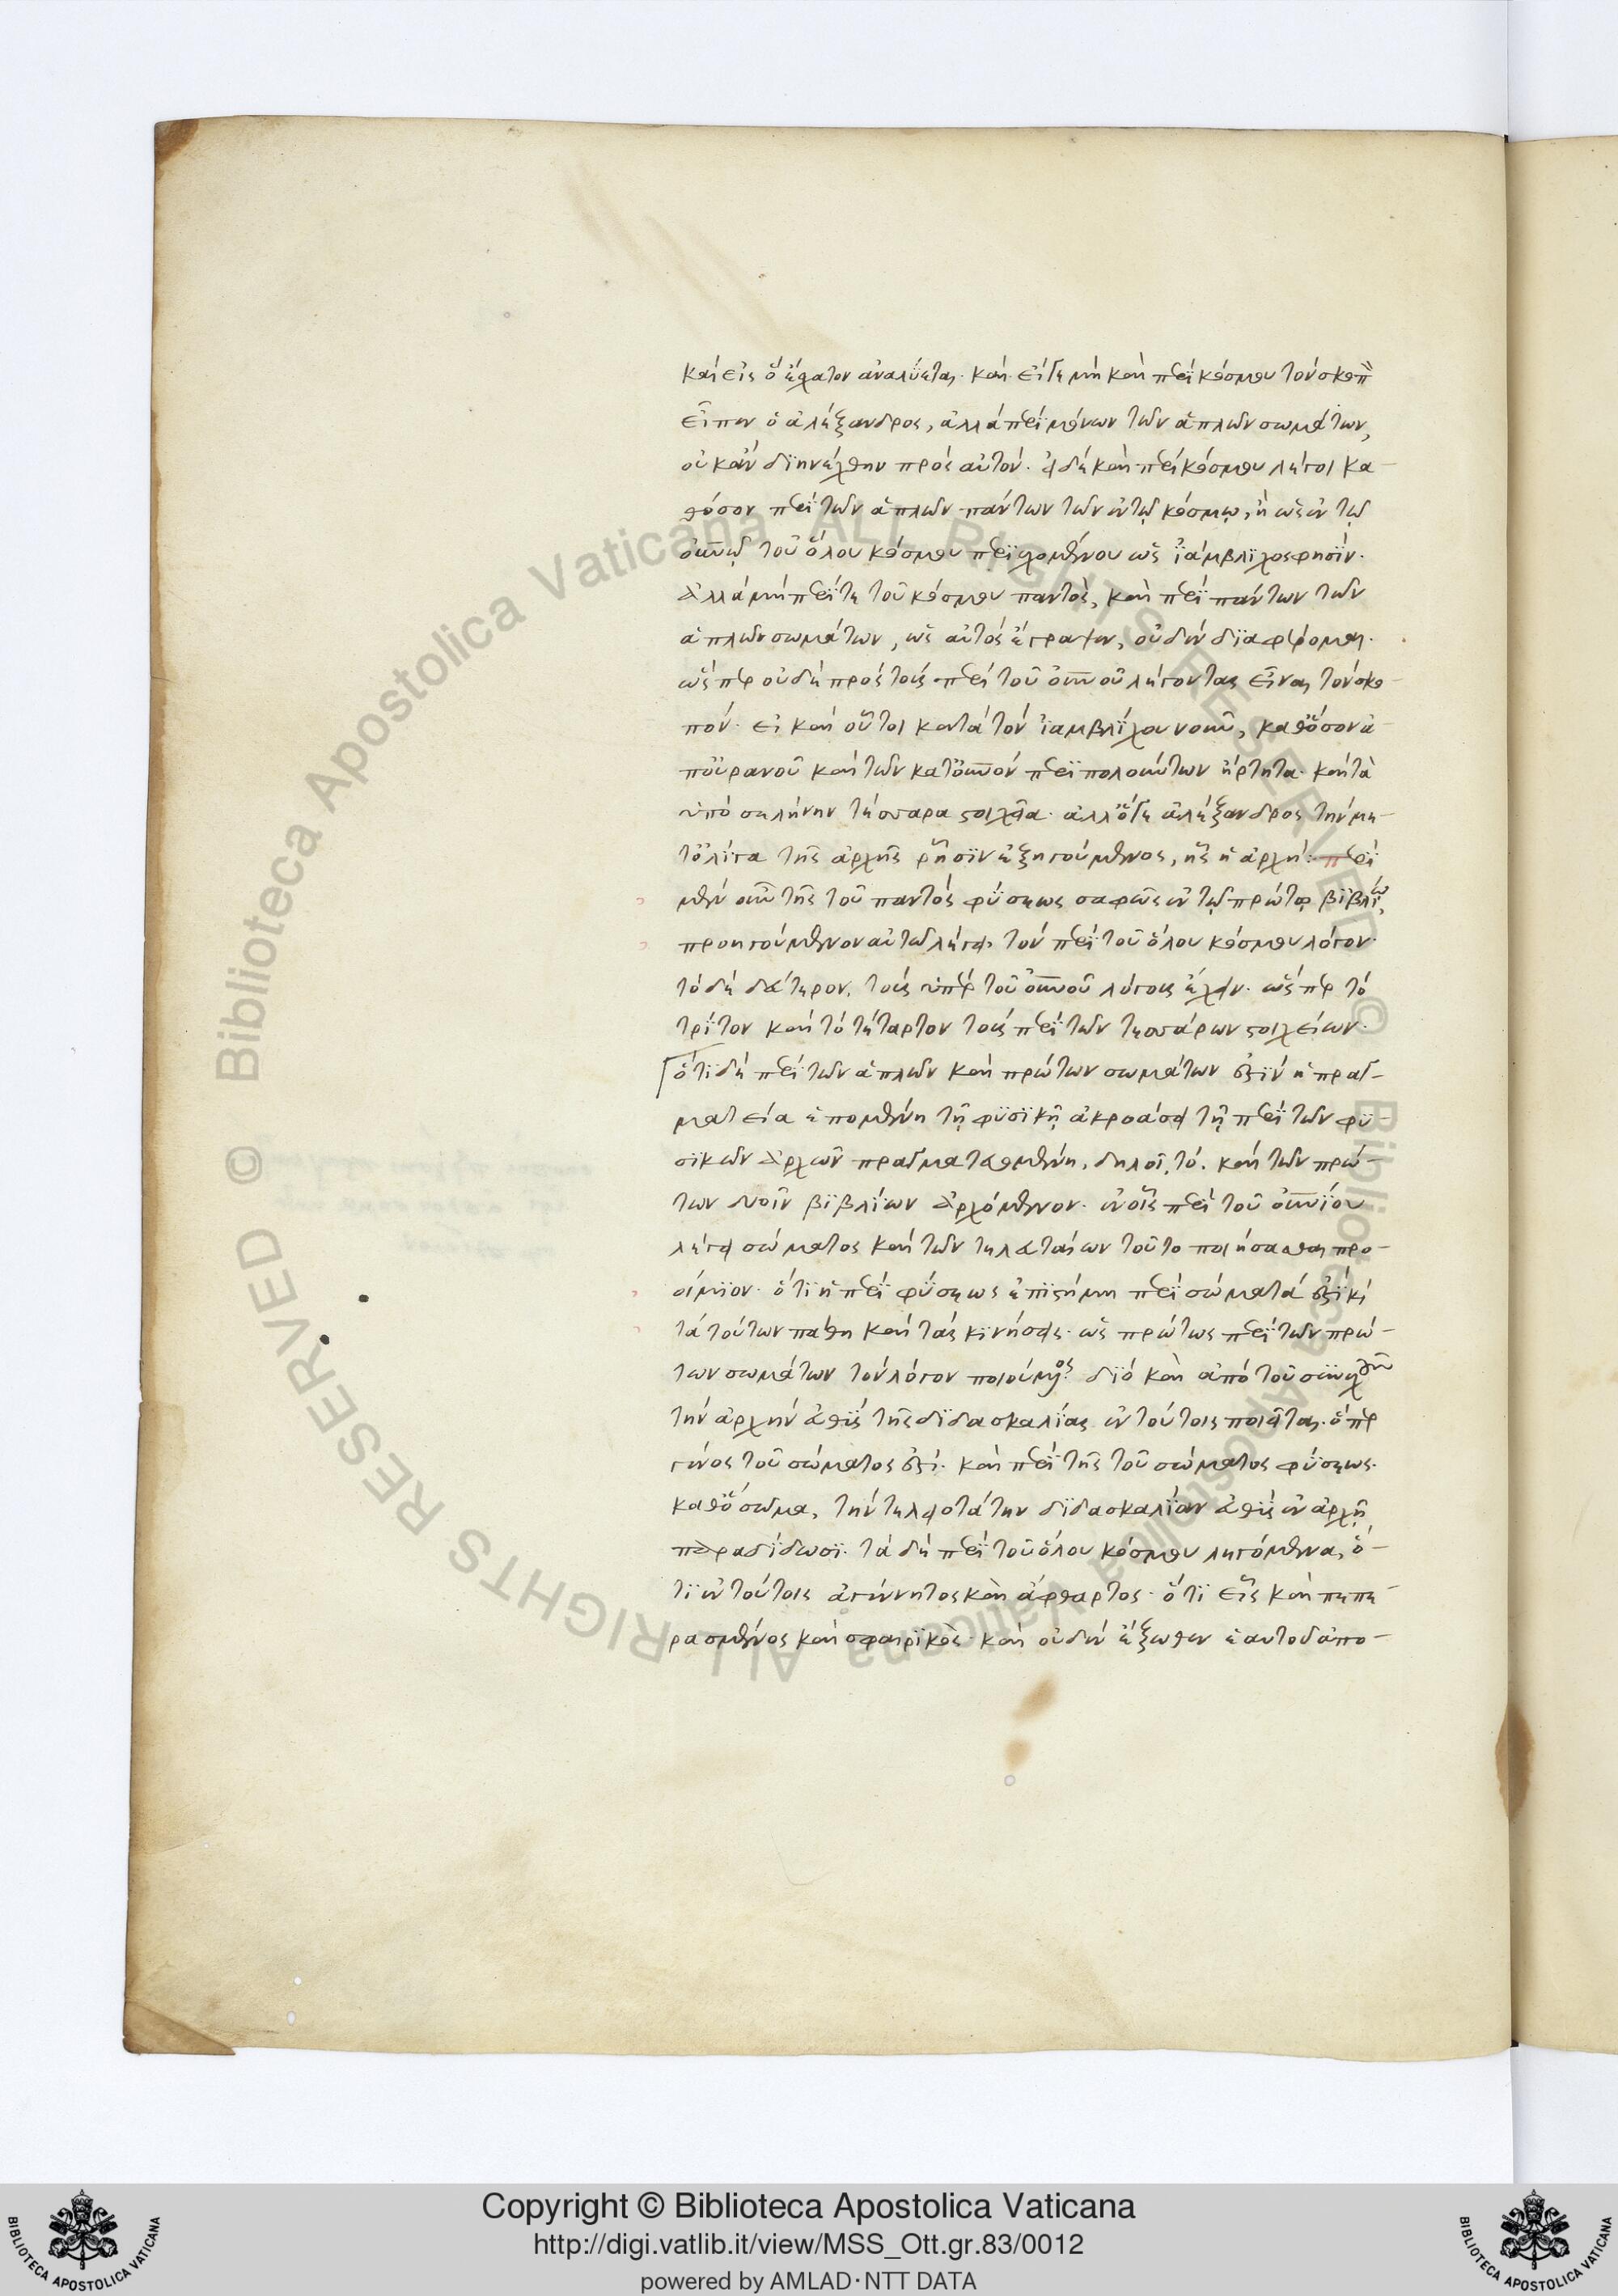 καὶ εἰς ὃ ἔσχατον ἀναλύεται. καὶ εἴγε μὴ καὶ περὶ κόσμου τὸν σκοπὸν
εἶπεν ὁ ἀλέξανδρος, ἀλλὰ περὶ μόνων τῶν ἁπλῶν σωμάτων,
οὐκ ἂν διηνέχθην πρὸς αὐτόν. εἰ δὲ καὶ περὶ κόσμου λέγοι κα-
θόσον περὶ τῶν ἁπλῶν πάντων τῶν ἐν τῷ κόσμῳ, ἢ ὡς ἐν τῷ
οὐνῷ τοῦ ὅλου κόσμου περιεχομένου ὡς ἰάμβλιχος φησίν.
ἀλλὰ μὴ περί τε τοῦ κόσμου παντὸς, καὶ περὶ πάντων τῶν
ἁπλῶν σωμάτων, ὡς αὐτὸς ἔγραψεν, οὐδὲν διαφέρομαι.
ὥσπερ οὐδὲ πρὸς τοὺς περὶ τοῦ οὐνοῦ λέγοντας εἶναι τὸν σκο-
πόν. εἰ καὶ οὗτοι κατὰ τὸν ἰαμβλίχου νοῦν, καθ' ὅσον ἀ-
π' οὐρανοῦ καὶ τῶν κατ' οὐνὸν περιπολούντων ἤρτηται καὶ τὰ
ὑπὸ σελήνην τέσσαρα στοιχεῖα. ἀλλ' ὅγε ἀλέξανδρος τὴν με-
τ' ὀλίγα τῆς ἀρχῆς ῥῆσιν ἐξηγούμενος, ἧς ἡ ἀρχή: περὶ
μὲν οὖν τῆς τοῦ παντὸς φύσεως σαφῶς ἐν τῷ πρώτῳ βιβλίῳ,
προηγούμενον αὐτῶ λέγει τὸν περὶ τοῦ ὅλου κόσμου λόγον.
τὸ δὲ δεύτερον, τοὺς ὑπὲρ τοῦ οὐνοῦ λόγους ἔχειν. ὥσπερ τὸ
τρίτον καὶ τὸ τέταρτον τοὺς περὶ τῶν τεσσάρων στοιχείων.
ὅτι δὲ περὶ τῶν ἁπλῶν καὶ πρώτων σωμάτων ἐστὶν ἡ πραγ-
ματεία ἑπομένη τῇ φυσικῇ ἀκροάσει τῇ περὶ τῶν φυ-
σικῶν ἀρχῶν πραγματευομένη, δηλοῖ τὸ. καὶ τῶν πρώ-
των δυοῖν βιβλίων ἀρχόμενον. ἐν οἷς περὶ τοῦ οὐνίου
λέγει σώματος καὶ τῶν τελευταίων τοῦτο ποιήσασθαι προ-
οίμιον. ὅτι ἡ περὶ φύσεως ἐπιστήμη περὶ σώματά ἐστι καὶ
τὰ τούτων πάθη καὶ τὰς κινήσεις. ὡς πρώτως περὶ τῶν πρώ-
των σωμάτων τὸν λόγον ποιούμενος. διὸ καὶ ἀπὸ τοῦ συνεχοῦς
τὴν ἀρχὴν εὐθὺς τῆς διδασκαλίας ἐν τούτοις ποιεῖται. ὅπερ
γένος τοῦ σώματος ἐστί. καὶ περὶ τῆς τοῦ σώματος φύσεως.
καθ' ὃ σῶμα, τὴν τελειοτάτην διδασκαλίαν εὐθὺς ἐν ἀρχῇ
παραδίδωσι. τὰ δὲ περὶ τοῦ ὅλου κόσμου λεγόμενα, ὅ-
τι ἐν τούτοις ἀγέννητος καὶ ἄφθαρτος. ὅτι εἷς καὶ πεπε-
ρασμένος καὶ σφαιρικὸς. καὶ οὐδὲν ἔξωθεν ἑαυτοῦ ἀπο-
Copyright © Biblioteca Apostolica Vaticana
http://digi.vatlib.it/view/MSS_Ott.gr.83/0012
powered by AMLAD·NTT DATA
BIBLIOTECA APOSTOLICA VATICANA
BIBLIOTECA APOSTOLICA VATICANA
© Biblioteca Apostolica Vaticana ALL RIGHTS RESERVED
© Biblioteca Apostolica Vaticana ALL RIGHTS RESERVED